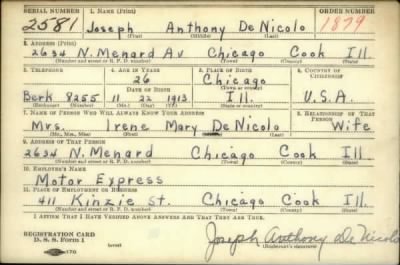 SERIAL NUMBER 1. NAME (Print) ORDER NUMBER
2581 Joseph Anthony De Nicolo 1879
(First) (Middle) (Last)
2. ADDRESS (Print)
2634 N. Menard Av Chicago Cook Ill.
(Number and street or R. F. D. number) (Town) (County) (State)
3. TELEPHONE 4. AGE IN YEARS 5. PLACE OF BIRTH 6. COUNTRY OF CITIZENSHIP
26 Chicago
DATE OF BIRTH (Town or county)
Berk 8255 11 22 1913 Ill. U.S.A.
(Exchange) (Number) (Mo.) (Day) (Yr.) (State or country)
7. NAME OF PERSON WHO WILL ALWAYS KNOW YOUR ADDRESS 8. RELATIONSHIP OF THAT PERSON
Mrs. Irene Mary De Nicolo Wife
(Mr., Mrs., Miss) (First) (Middle) (Last)
9. ADDRESS OF THAT PERSON
2634 N. Menard Chicago Cook Ill.
(Number and street or R. F. D. number) (Town) (County) (State)
10. EMPLOYER'S NAME
Motor Express
11. PLACE OF EMPLOYMENT OR BUSINESS
411 Kinzie St. Chicago Cook Ill.
(Number and street or R. F. D. number) (Town) (County) (State)
I AFFIRM THAT I HAVE VERIFIED ABOVE ANSWERS AND THAT THEY ARE TRUE.
REGISTRATION CARD
D. S. S. Form 1 (over) Joseph Anthony De Nicolo
(Registrant's signature)